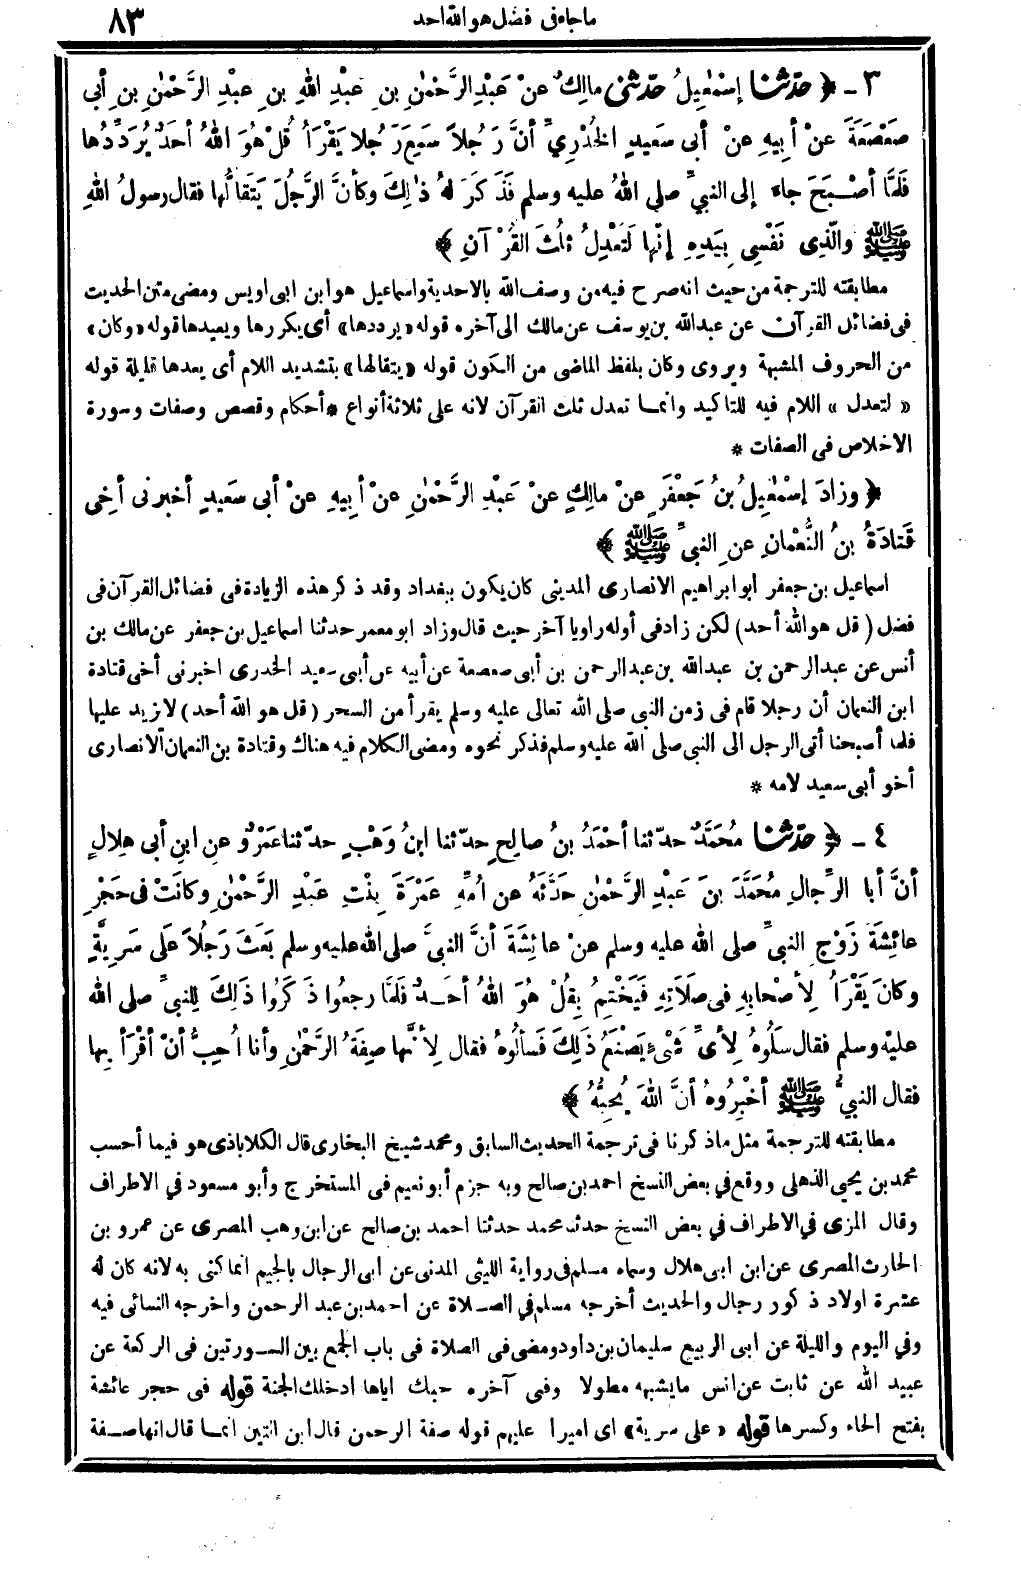 ما جاء في فضل هو الله احد ٨٣
٣ - ﴿ حدّثنا إسْمٰعِيلُ حدّثني مالِكٌ عنْ عَبْدِ الرَّحْمٰنِ بنِ عَبْدِ اللهِ بنِ عبْدِ الرَّحْمٰنِ بنِ أبي
صَعْصَعَةَ عنْ أبِيهِ عنْ أبي سَعِيدٍ الخُدْرِيِّ أنَّ رَجُلاً سَمِعَ رَجُلا يَقْرَأُ قُلْ هُوَ اللهُ أحَدٌ يُرَدِّدُها
فَلَمَّا أصْبَحَ جاءَ إلى النبيِّ صلى اللهُ عليه وسلم فَذَكَرَ لهُ ذٰلِكَ وكأنَّ الرَّجُلَ يَتَقَالُّها فقال رسولُ اللهِ
ﷺ والّذِى نَفْسِي بِيَدِهِ إنّها لَتَعْدِلُ ثُلُثَ القُرْآنِ ﴾
مطابقته للترجمة من حيث انه صرح فيه من وصف الله بالاحدية واسماعيل هو ابن ابى اويس ومضى متن الحديث
في فضائل القرآن عن عبد الله بن يوسف عن مالك الى آخره قوله «يرددها» أى يكررها ويعيدها قوله «وكان»
من الحروف المشبهة ويروى وكان بلفظ الماضى من الكون قوله «يتقالها» بتشديد اللام أى يعدها قليلة قوله
« لتعدل » اللام فيه للتاكيد وانما تعدل ثلث القرآن لانه على ثلاثة أنواع * أحكام وقصص وصفات وسورة
الاخلاص فى الصفات *
﴿ وزادَ إسْمٰعِيلُ بنُ جَعْفَرٍ عنْ مالِكٍ عنْ عَبْدِ الرَّحْمٰنِ عنْ أبِيهِ عنْ أبى سَعِيدٍ أخبرنى أخِي
قَتادَةُ بنُ النُّعْمانِ عنِ النبيِّ ﷺ ﴾
اسماعيل بن جعفر ابو ابراهيم الانصارى المدينى كان يكون ببغداد وقد ذكر هذه الزيادة فى فضائل القرآن فى
فضل ( قل هو الله أحد ) لكن زاد فى أوله راويا آخر حيث قال وزاد ابو معمر حدثنا اسماعيل بن جعفر عن مالك بن
أنس عن عبد الرحمن بن عبد الله بن عبد الرحمن بن أبى صعصعة عن أبيه عن أبى سعيد الخدرى اخبرنى أخى قتادة
ابن النعمان أن رجلا قام فى زمن النبى صلى الله تعالى عليه وسلم يقرأ من السحر ( قل هو الله أحد ) لا زيد عليها
فلما أصبحنا أتى الرجل الى النبى صلى الله عليه وسلم فذكر نحوه ومضى الكلام فيه هناك وقتادة بن النعمان الانصارى
أخو أبى سعيد لامه *
٤ - ﴿ حدّثنا مُحَمَّدٌ حدّثنا أحْمَدُ بنُ صالِحٍ حدّثنا ابنُ وَهْبٍ حدّثنا عَمْرٌو عنِ ابنِ أبى هِلالٍ
أنَّ أبا الرِّجالِ مُحَمَّدَ بنَ عَبدِ الرَّحْمٰنِ حَدَّثَهُ عن اُمِّهِ عَمْرَةَ بِنْتِ عبْدِ الرَّحْمٰنِ وكانَتْ فى حَجْرِ
عائِشَةَ زَوْجِ النبيِّ صلى الله عليه وسلم عنْ عائِشَةَ أنَّ النبيَّ صلى الله عليه وسلم بَعَثَ رَجُلاً عَلَى سَرِيَّةٍ
وكانَ يَقْرَأُ لِأصْحابِهِ فى صَلاتِهِ فَيَخْتِمُ بِقُلْ هُوَ اللهُ أحَدٌ فلَمَّا رجعُوا ذَكَرُوا ذَلِكَ لِلنبيِّ صلى الله
عليْه وسلم فقال سَلُوهُ لِأىِّ شَىْءٍ يَصْنَعُ ذَلِكَ فَسألُوهُ فقال لِأنَّها صِفَةُ الرَّحْمٰنِ وأنا اُحِبُّ أنْ أقْرَأَ بِها
فقال النبيُّ ﷺ أخْبِرُوهُ أنَّ اللهَ يُحِبُّهُ ﴾
مطابقته للترجمة مثل ماذكرنا فى ترجمة الحديث السابق ومحمد شيخ البخارى قال الكلاباذى هو فيما أحسب
محمد بن يحيى الذهلى ووقع في بعض النسخ احمد بن صالح وبه جزم أبو نعيم فى المستخرج وأبو مسعود في الاطراف
وقال المزى في الاطراف في بعض النسخ حدثنا محمد حدثنا احمد بن صالح عن ابن وهب المصرى عن عمرو بن
الحارث المصرى عن ابن ابى هلال وسماه مسلم فى رواية الليثى المدنى عن ابى الرجال بالجيم انما كنى به لانه كان له
عشرة اولاد ذكور رجال والحديث أخرجه مسلم في الصلاة عن احمد بن عبد الرحمن واخرجه النسائى فيه
وفي اليوم والليلة عن ابى الربيع سليمان بن داود ومضى فى الصلاة فى باب الجمع بين السورتين فى الركعة عن
عبيد الله عن ثابت عن انس مايشبهه مطولا وفى آخره حبك اياها ادخلك الجنة قوله فى حجر عائشة
بفتح الحاء وكسرها قوله « على سرية » اى اميرا عليهم قوله صفة الرحمن قال ابن التين انما قال انها صفة